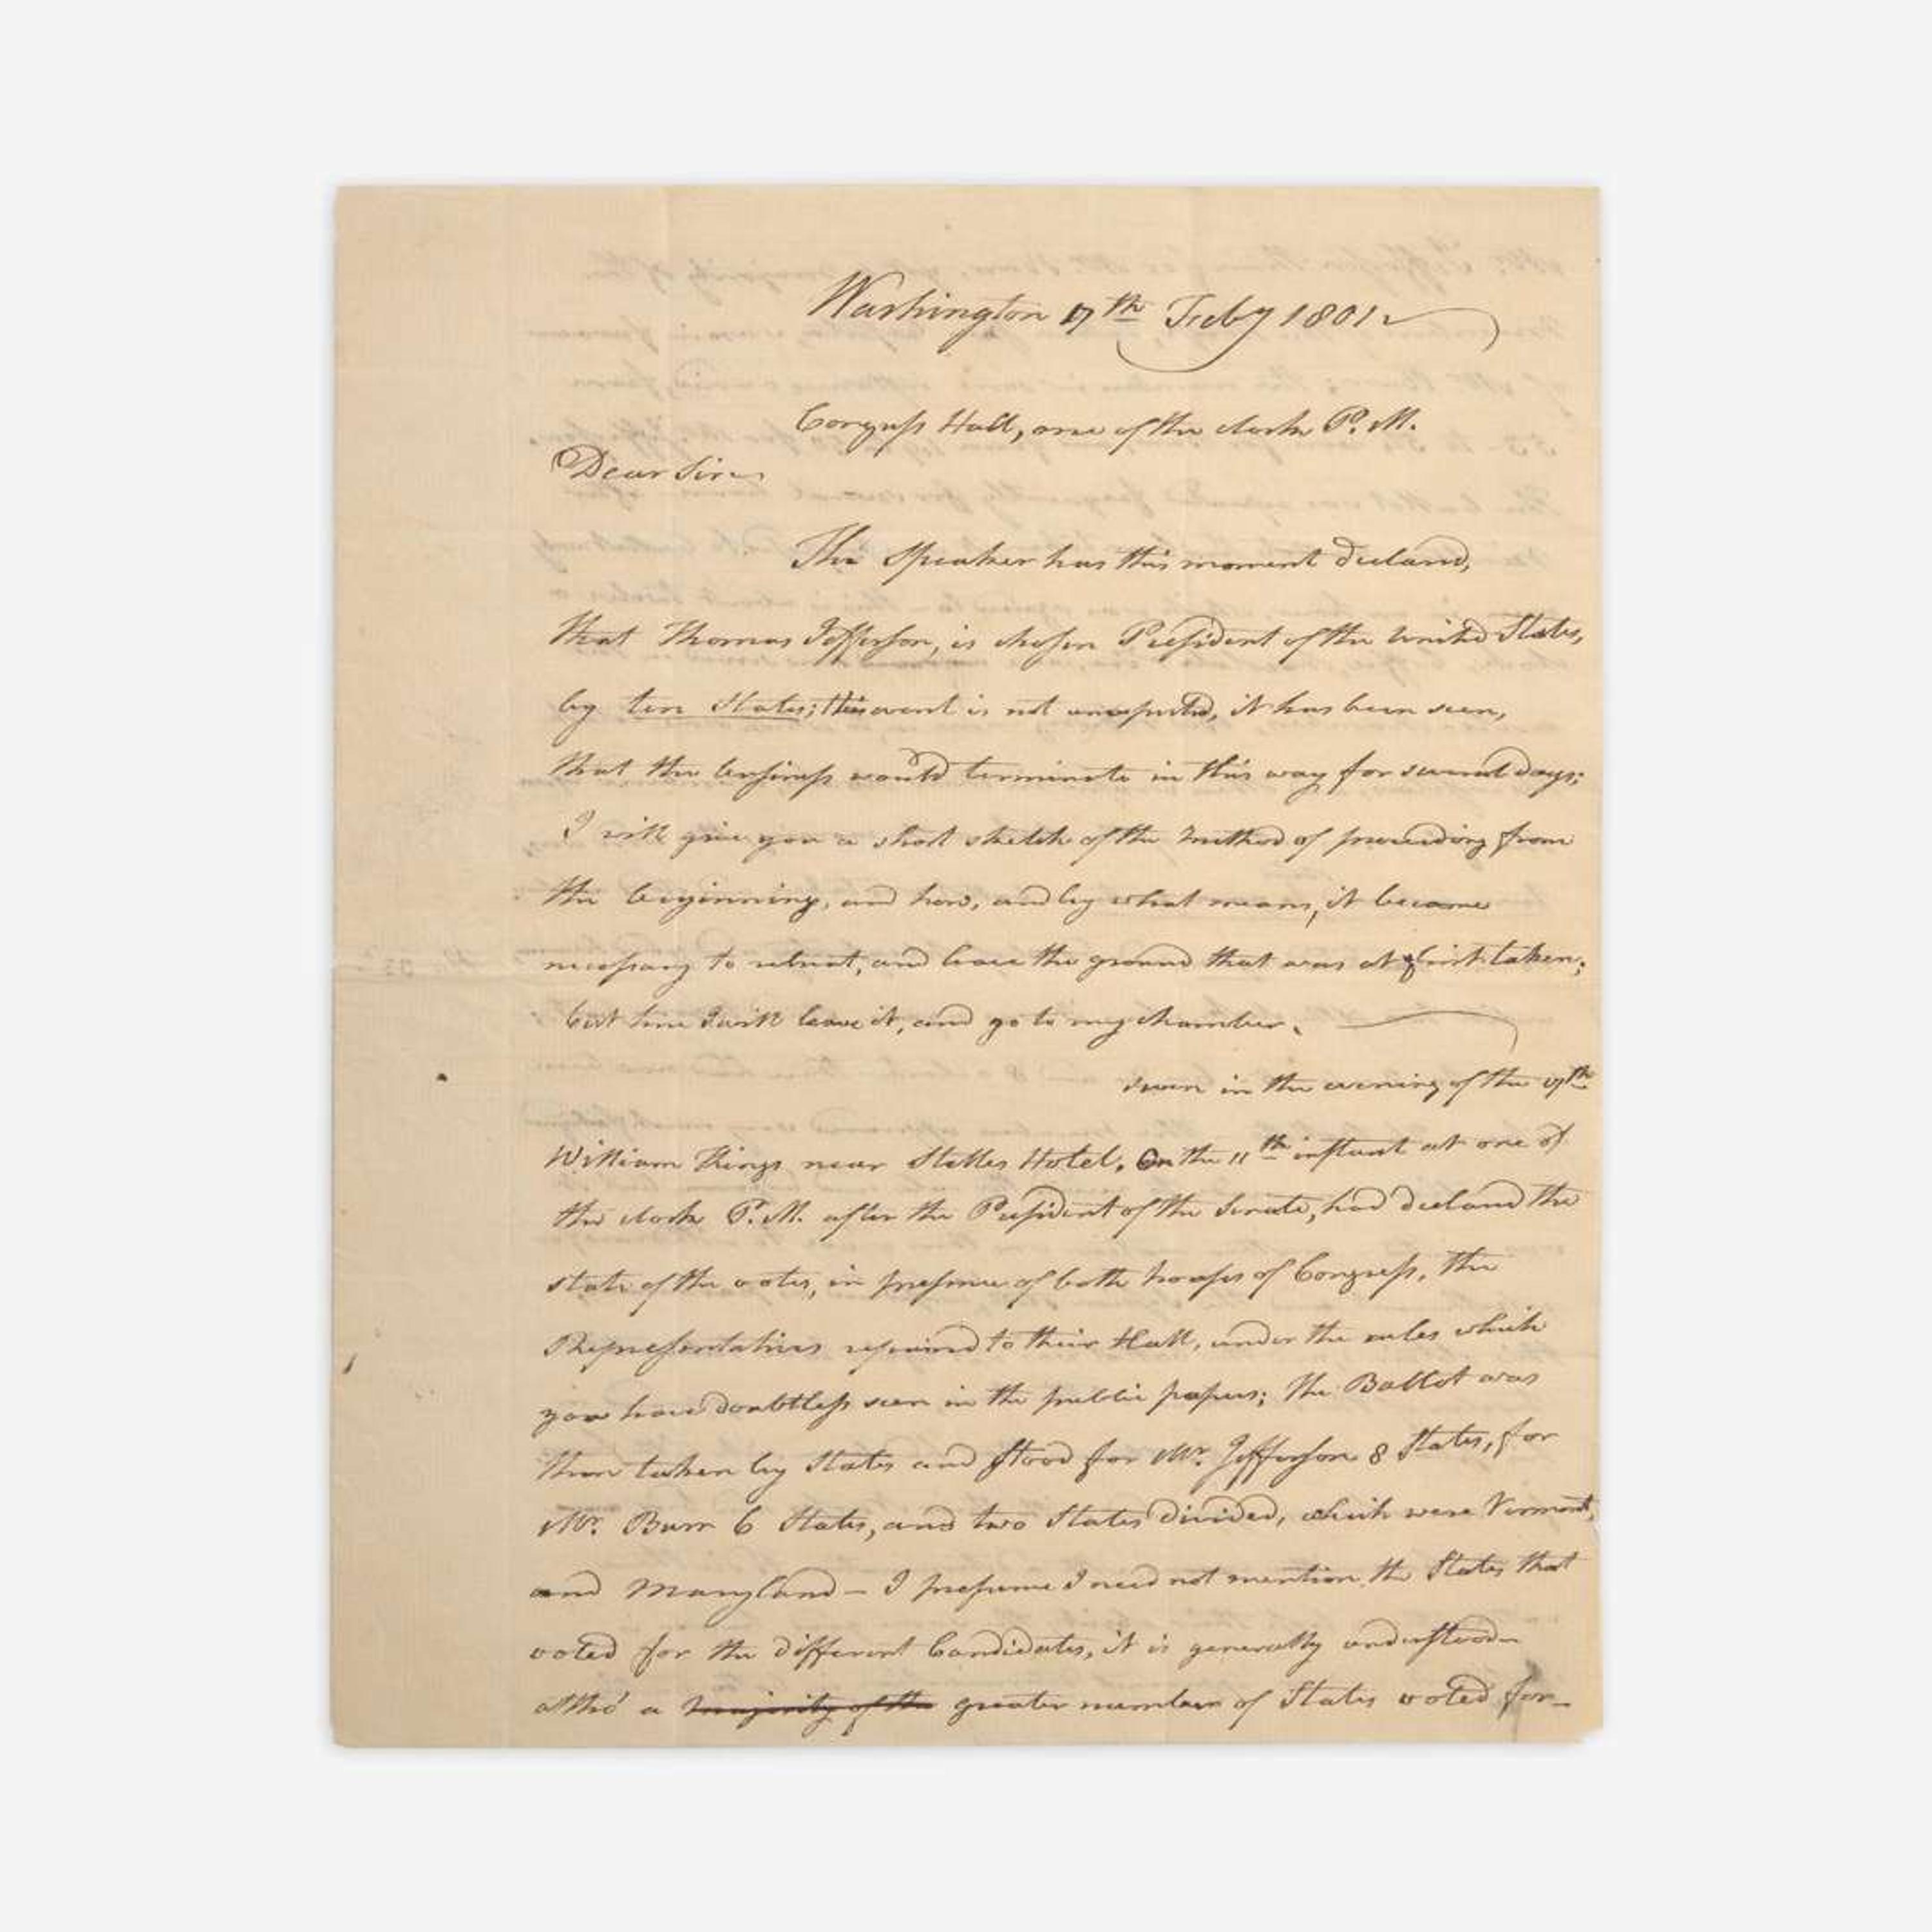 Washington 17th Feby 1801
Congress Hall, one of the clock P. M.
Dear Sir
The Speaker has this moment declared,
that Thomas Jefferson, is chosen President of the United States,
by ten States; this event is not unexpected, it has been seen,
that the business would terminate in this way for several days;
I will give you a short sketch of the method of proceeding from
the beginning, and how, and by what means, it became
necessary to retreat, and leave the ground that was at first taken;
but here I will leave it, and go to my chamber.
seven in the evening of the 17th
William Kings near Stelles Hotel. On the 11th instant at one of
the clock P. M. after the President of the Senate, had declared the
state of the votes, in presence of both houses of Congress, the
Representatives repaired to their Hall, under the rules which
you have doubtless seen in the public papers; the Ballot was
then taken by States and stood for Mr. Jefferson 8 States, for
Mr. Burr 6 States, and two States divided, which were Vermont,
and Maryland — I presume I need not mention the States that
voted for the different Candidates, it is generally understood
altho' a majority of the greater number of States voted for